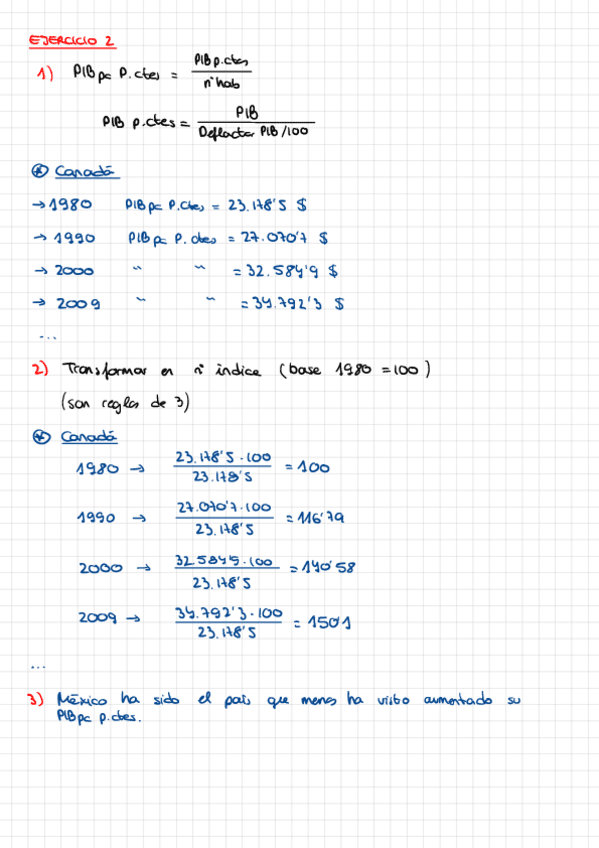 EJERCICIO 2
1) PIBpc P.ctes = PIB p.ctes / nº hab
PIB p.ctes = PIB / Deflactor PIB/100
* Canadá
→ 1980 PIBpc P.ctes = 23.178'5 $
→ 1990 PIBpc P.ctes = 27.070'7 $
→ 2000 " " = 32.584'9 $
→ 2009 " " = 34.792'3 $
...
2) Transformar en nº índice (base 1980 = 100)
(son reglas de 3)
* Canadá
1980 → 23.178'5 · 100 / 23.178'5 = 100
1990 → 27.070'7 · 100 / 23.178'5 = 116'79
2000 → 32.584'9 · 100 / 23.178'5 = 140'58
2009 → 34.792'3 · 100 / 23.178'5 = 150'1
...
3) México ha sido el país que menos ha visto aumentado su
PIBpc p.ctes.